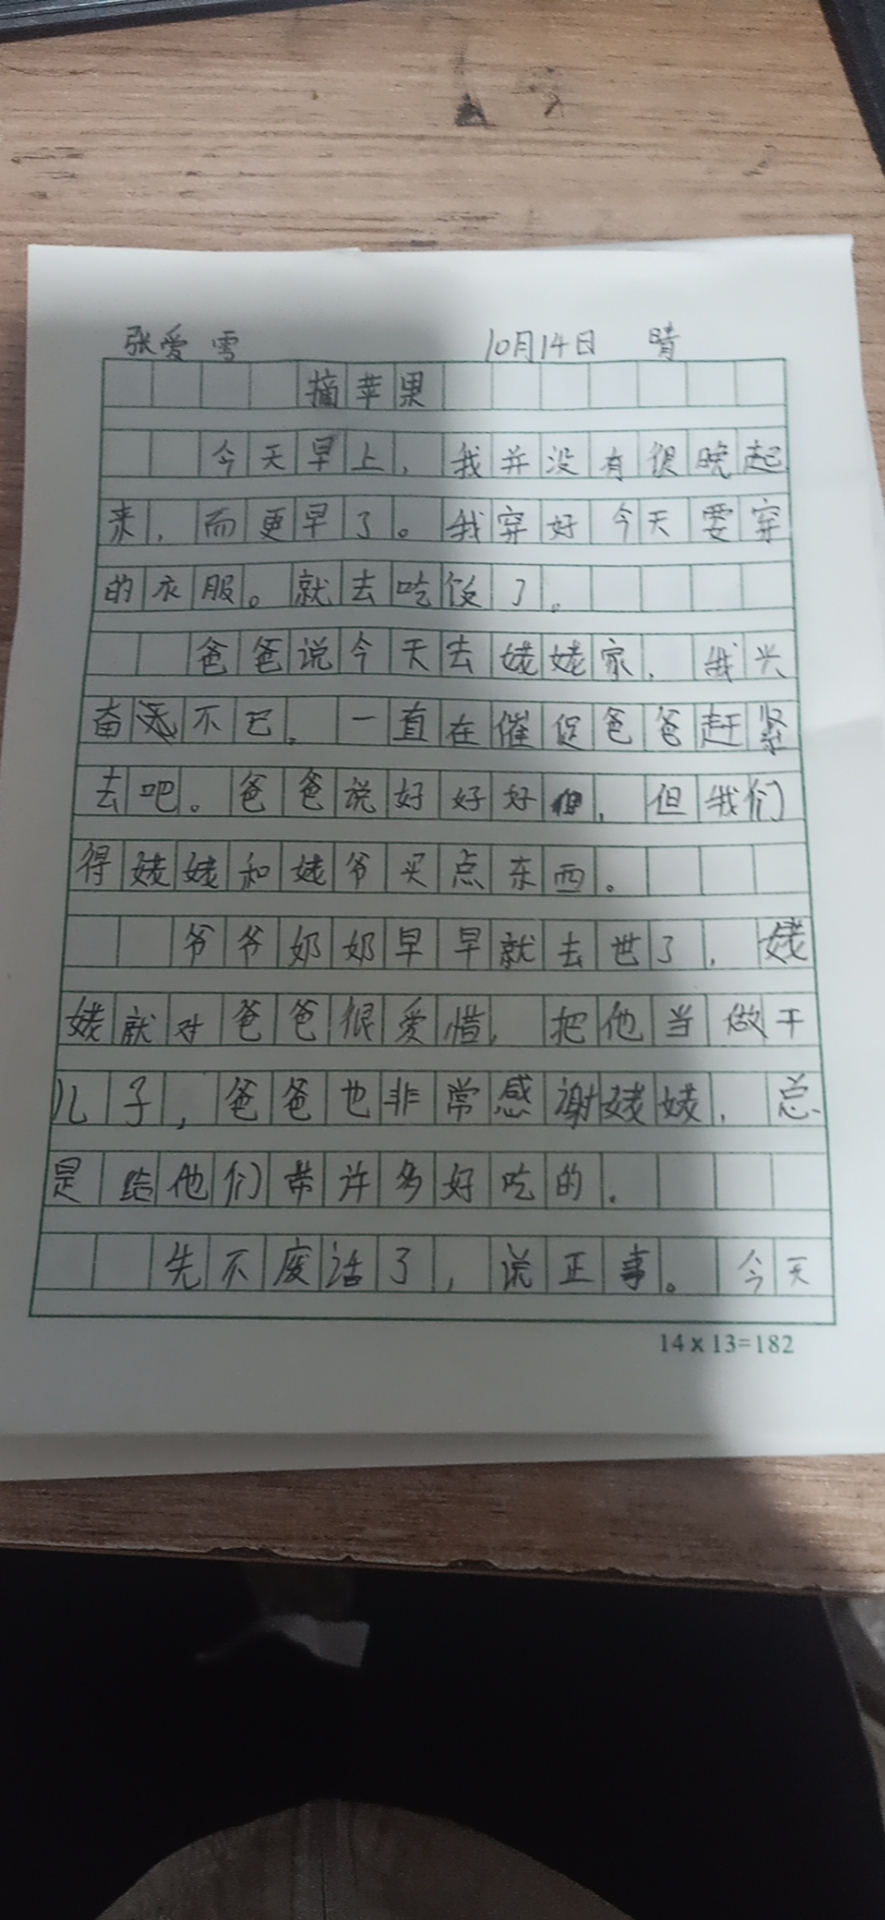 张爱雪 10月14日 晴
摘苹果
今天早上，我并没有很晚起
来，而更早了。我穿好今天要穿
的衣服。就去吃饭了。
爸爸说今天去姥姥家，我兴
奋不已，一直在催促爸爸赶紧
去吧。爸爸说好好好，但我们
得姥姥和姥爷买点东西。
爷爷奶奶早早就去世了，姥
姥就对爸爸很爱惜，把他当做干
儿子，爸爸也非常感谢姥姥，总
是给他们带许多好吃的。
先不废话了，说正事。今天
14x13=182